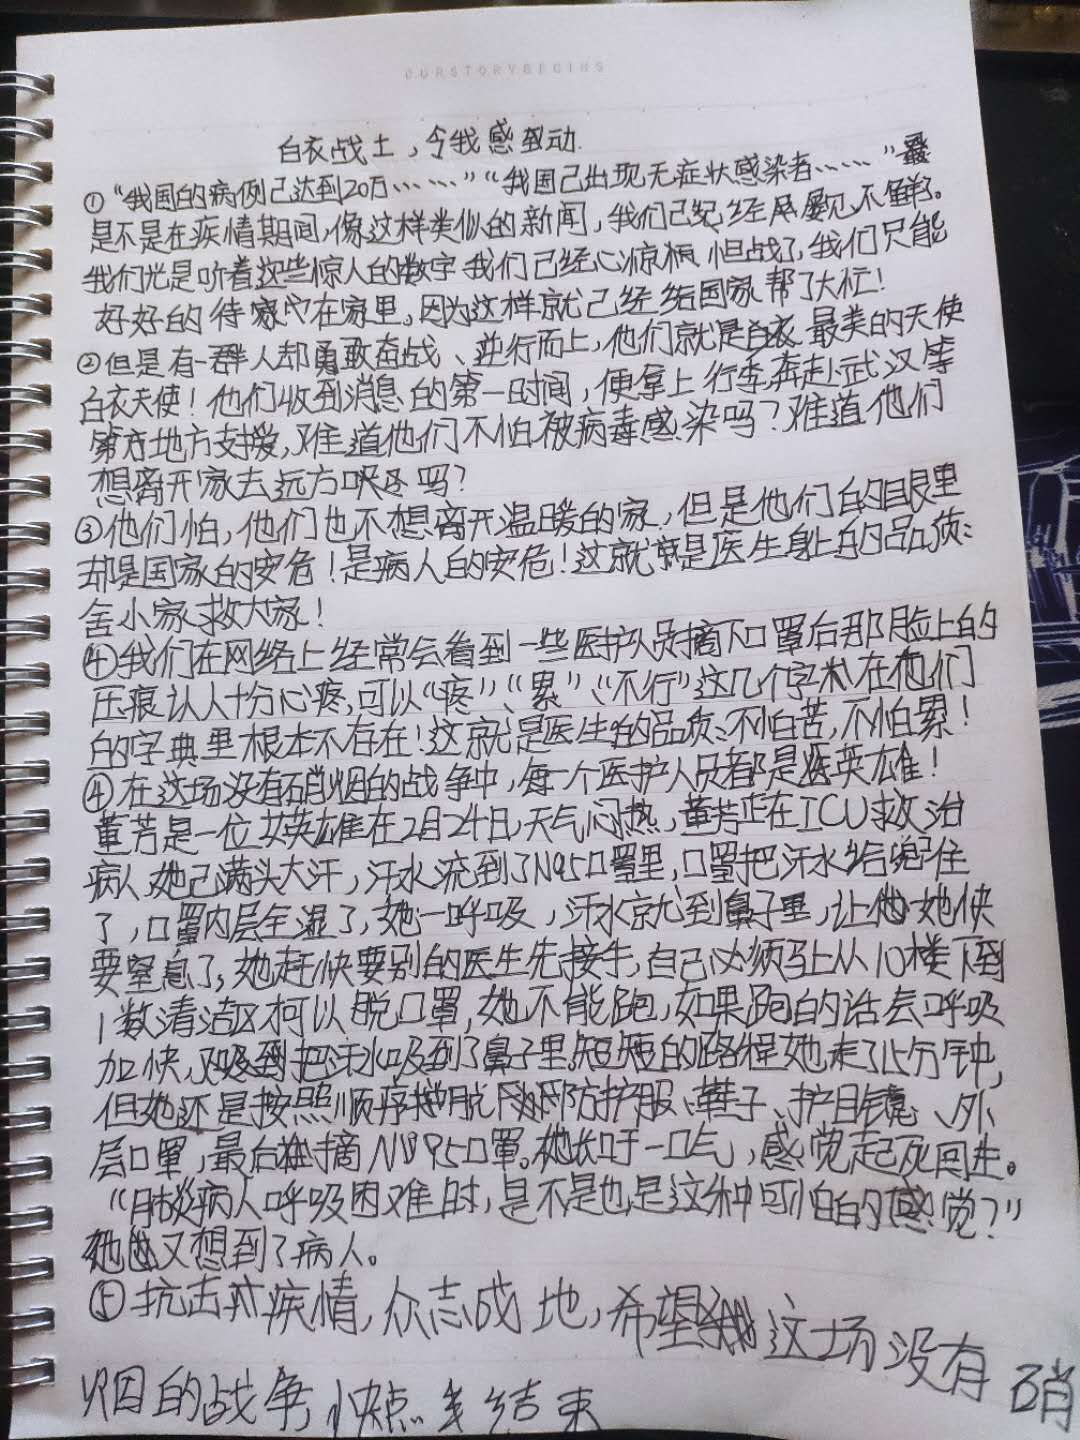 OURSTORYBEGINS
白衣战士，令我感动
①“我国的病例已达到20万……”“我国已出现无症状感染者……”
是不是在疾情期间，像这样类似的新闻，我们已经屡见不鲜。
我们光是听着这些惊人的数字我们已经心惊胆战了，我们只能
好好的待在家里，因为这样就已经给国家帮了大忙！
②但是有一群人却勇敢奋战、逆行而上，他们就是最美的天使
白衣天使！他们收到消息的第一时间，便拿上行李奔赴武汉等
地方支援，难道他们不怕被病毒感染吗？难道他们
想离开家去远方吗？
③他们怕，他们也不想离开温暖的家，但是他们的眼里
却是国家的安危！是病人的安危！这就是医生身上的品质：
舍小家救大家！
④我们在网络上经常会看到一些医护人员摘下口罩后那脸上的
压痕认人十分心疼，可以“疼”、“累”、“不行”这几个字术在他们
的字典里根本不存在！这就是医生的品质：不怕苦，不怕累！
④在这场没有硝烟的战争中，每一个医护人员都是英雄！
董芳是一位女英雄在2月24日，天气闷热，董芳正在ICU救治
病人，她已满头大汗，汗水流到了N95口罩里，口罩把汗水给兜住
了，口罩内层全湿了，她一呼吸，汗水就到鼻子里，让她快
要窒息了，她赶快要别的医生先接手，自己必须马上从10楼下到
1数清洁区柯以脱口罩，她不能跑，如果跑的话会呼吸
加快，把汗水吸到了鼻子里。短短的路程她走了15分钟，
但她还是按照顺序脱防护服、鞋子、护目镜、外
层口罩，最后摘N95口罩。她长吁一口气，感觉起死回生。
“病人呼吸困难时，是不是也是这种可怕的感觉？”
她又想到了病人。
⑤抗击疾情，众志成地，希望这场没有硝
烟的战争，快点结束